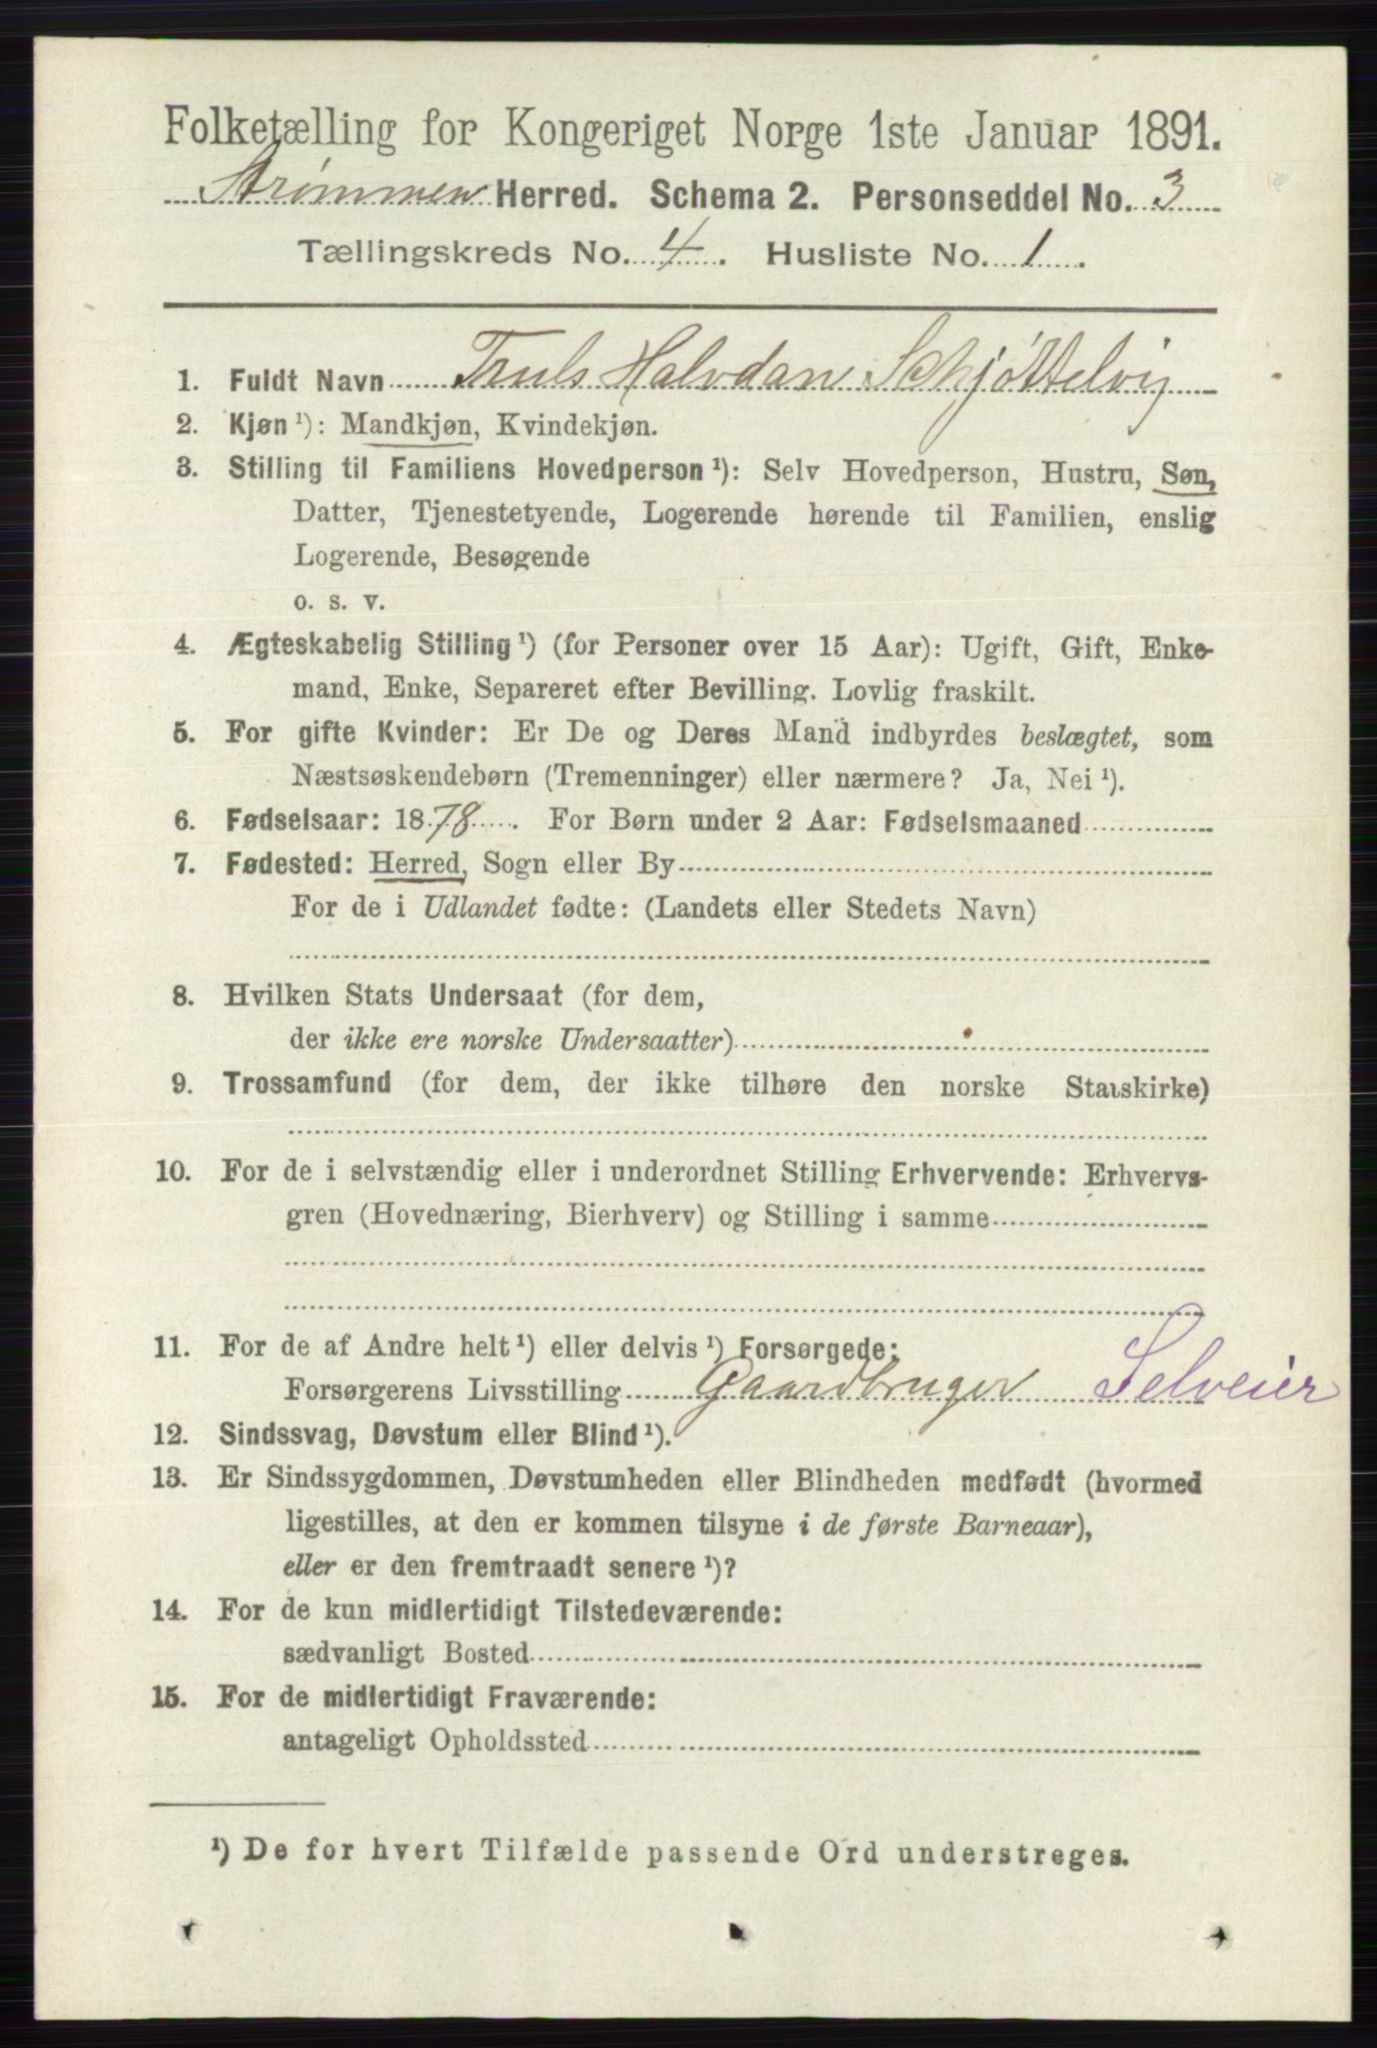 Folketælling for Kongeriget Norge 1ste Januar 1891.
Strømmen Herred. Schema 2. Personseddel No. 3
Tællingskreds No. 4. Husliste No. 1.
1. Fuldt Navn Truls Halvdan Schjøttelvig
2. Kjøn ¹): Mandkjøn, Kvindekjøn.
3. Stilling til Familiens Hovedperson ¹): Selv Hovedperson, Hustru, Søn,
Datter, Tjenestetyende, Logerende hørende til Familien, enslig
Logerende, Besøgende
o. s. v.
4. Ægteskabelig Stilling ¹) (for Personer over 15 Aar): Ugift, Gift, Enke-
mand, Enke, Separeret efter Bevilling. Lovlig fraskilt.
5. For gifte Kvinder: Er De og Deres Mand indbyrdes beslægtet, som
Næstsøskendebørn (Tremenninger) eller nærmere? Ja, Nei ¹).
6. Fødselsaar: 1878. For Børn under 2 Aar: Fødselsmaaned
7. Fødested: Herred, Sogn eller By
For de i Udlandet fødte: (Landets eller Stedets Navn)
8. Hvilken Stats Undersaat (for dem,
der ikke ere norske Undersaatter)
9. Trossamfund (for dem, der ikke tilhøre den norske Statskirke)
10. For de i selvstændig eller i underordnet Stilling Erhvervende: Erhvervs-
gren (Hovednæring, Bierhverv) og Stilling i samme
11. For de af Andre helt ¹) eller delvis ¹) Forsørgede:
Forsørgerens Livsstilling Gaardbruger Selveier
12. Sindssvag, Døvstum eller Blind ¹).
13. Er Sindssygdommen, Døvstumheden eller Blindheden medfødt (hvormed
ligestilles, at den er kommen tilsyne i de første Barneaar),
eller er den fremtraadt senere ¹)?
14. For de kun midlertidigt Tilstedeværende:
sædvanligt Bosted
15. For de midlertidigt Fraværende:
antageligt Opholdssted
¹) De for hvert Tilfælde passende Ord understreges.